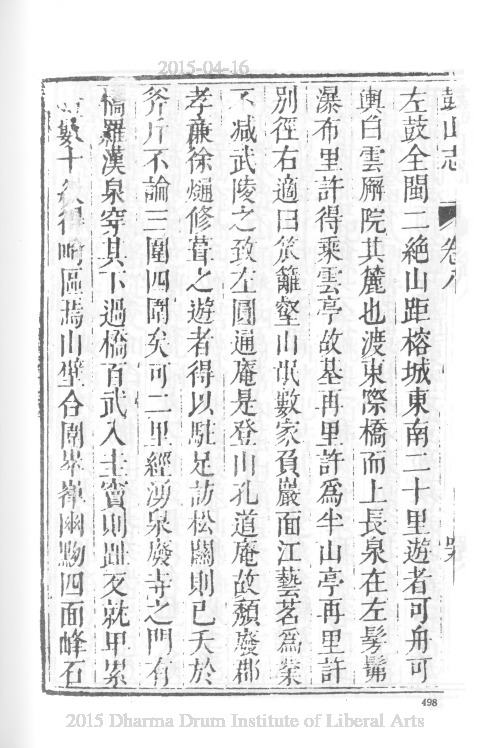 2015-04-16
鼓山志 卷八
左鼓全閩二絶山距榕城東南二十里遊者可舟可
輿白雲廨院其麓也渡東際橋而上長泉在左髣髴
瀑布里許得乘雲亭故基再里許爲半山亭再里許
別徑右適曰笊籬壑山氓數家負巖面江藝茗爲業
不減武陵之致左圓通庵是登山孔道庵故頽廢郡
孝廉徐𤊹修葺之遊者得以駐足訪松關則已夭於
斧斤不論三圍四圍矣可二里經湧泉廢寺之門有
橋羅漢泉穿其下過橋百武入圭竇則趾交就甲累
數十級得 區焉山壁合圍崒 幽黝四面峰石
498
2015 Dharma Drum Institute of Liberal Arts